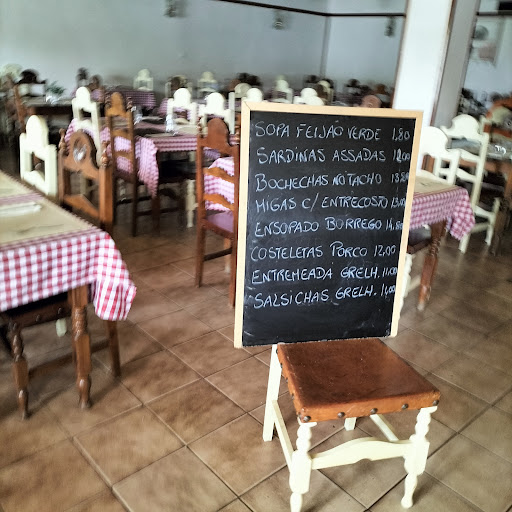 SOPA FEIJÃO VERDE 1,80
SARDINAS ASSADAS
BOCHECHAS NO TACHO
MIGAS C/ ENTRECOSTO
ENSOPADO BORREGO
COSTELETAS PORCO 12,00
ENTREMEADA GRELH. 11,00
SALSICHAS GRELH. 11,00